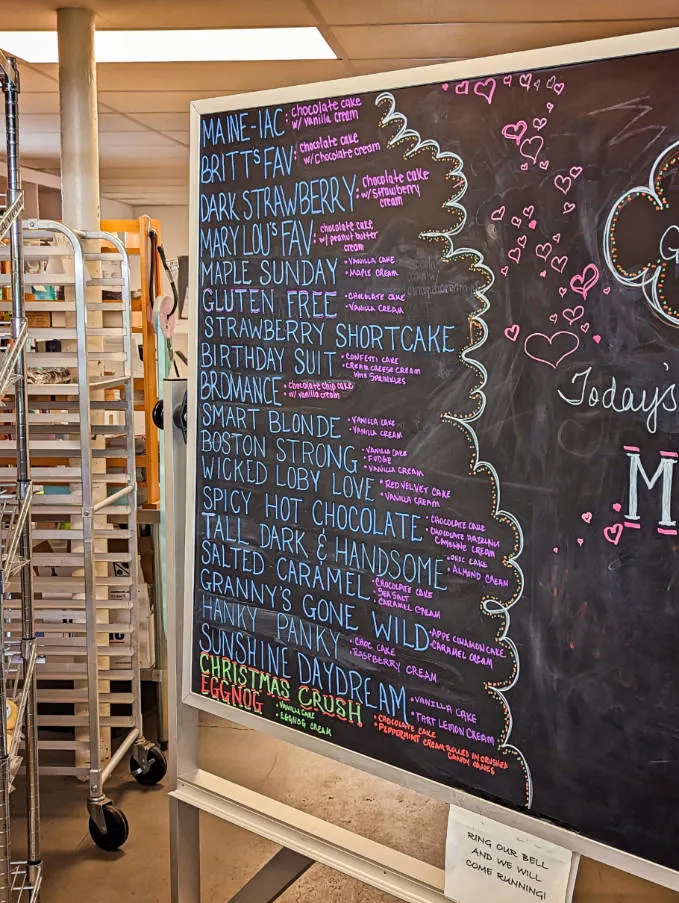 MAINE-IAC: chocolate cake
w/ vanilla cream
BRITT'S FAV: chocolate cake
w/chocolate cream
DARK STRAWBERRY: chocolate cake
w/strawberry
cream
MARY LOU'S FAV: chocolate cake
w/ peanut butter
cream
MAPLE SUNDAY • VANILLA CAKE
• MAPLE CREAM
GLUTEN FREE • CHOCOLATE CAKE
• VANILLA CREAM
STRAWBERRY SHORTCAKE
BIRTHDAY SUIT • CONFETTI CAKE
• CREAM CHEESE CREAM
WITH SPRINKLES
BROMANCE • chocolate chip cake
w/ vanilla cream
SMART BLONDE • VANILLA CAKE
• VANILLA CREAM
BOSTON STRONG • VANILLA CAKE
• FUDGE
• VANILLA CREAM
WICKED LOBY LOVE • RED VELVET CAKE
• VANILLA CREAM
SPICY HOT CHOCOLATE • CHOCOLATE CAKE
• CHOCOLATE HAZELNUT
CAYENNE CREAM
TALL DARK & HANDSOME • CHOC CAKE
• ALMOND CREAM
SALTED CARAMEL • CHOCOLATE CAKE
• SEA SALT
• CARAMEL CREAM
GRANNY'S GONE WILD • APPE CINAMON CAKE
• CARAMEL CREAM
HANKY PANKY • CHOC CAKE
• RASPBERRY CREAM
SUNSHINE DAYDREAM • VANILLA CAKE
• TART LEMON CREAM
CHRISTMAS CRUSH • CHOCOLATE CAKE
• PEPPERMINT CREAM ROLLED IN CRUSHED
CANDY CANES
EGGNOG • VANILLA CAKE
• EGGNOG CREAM
Today's
M
RING OUR BELL
AND WE WILL
COME RUNNING!